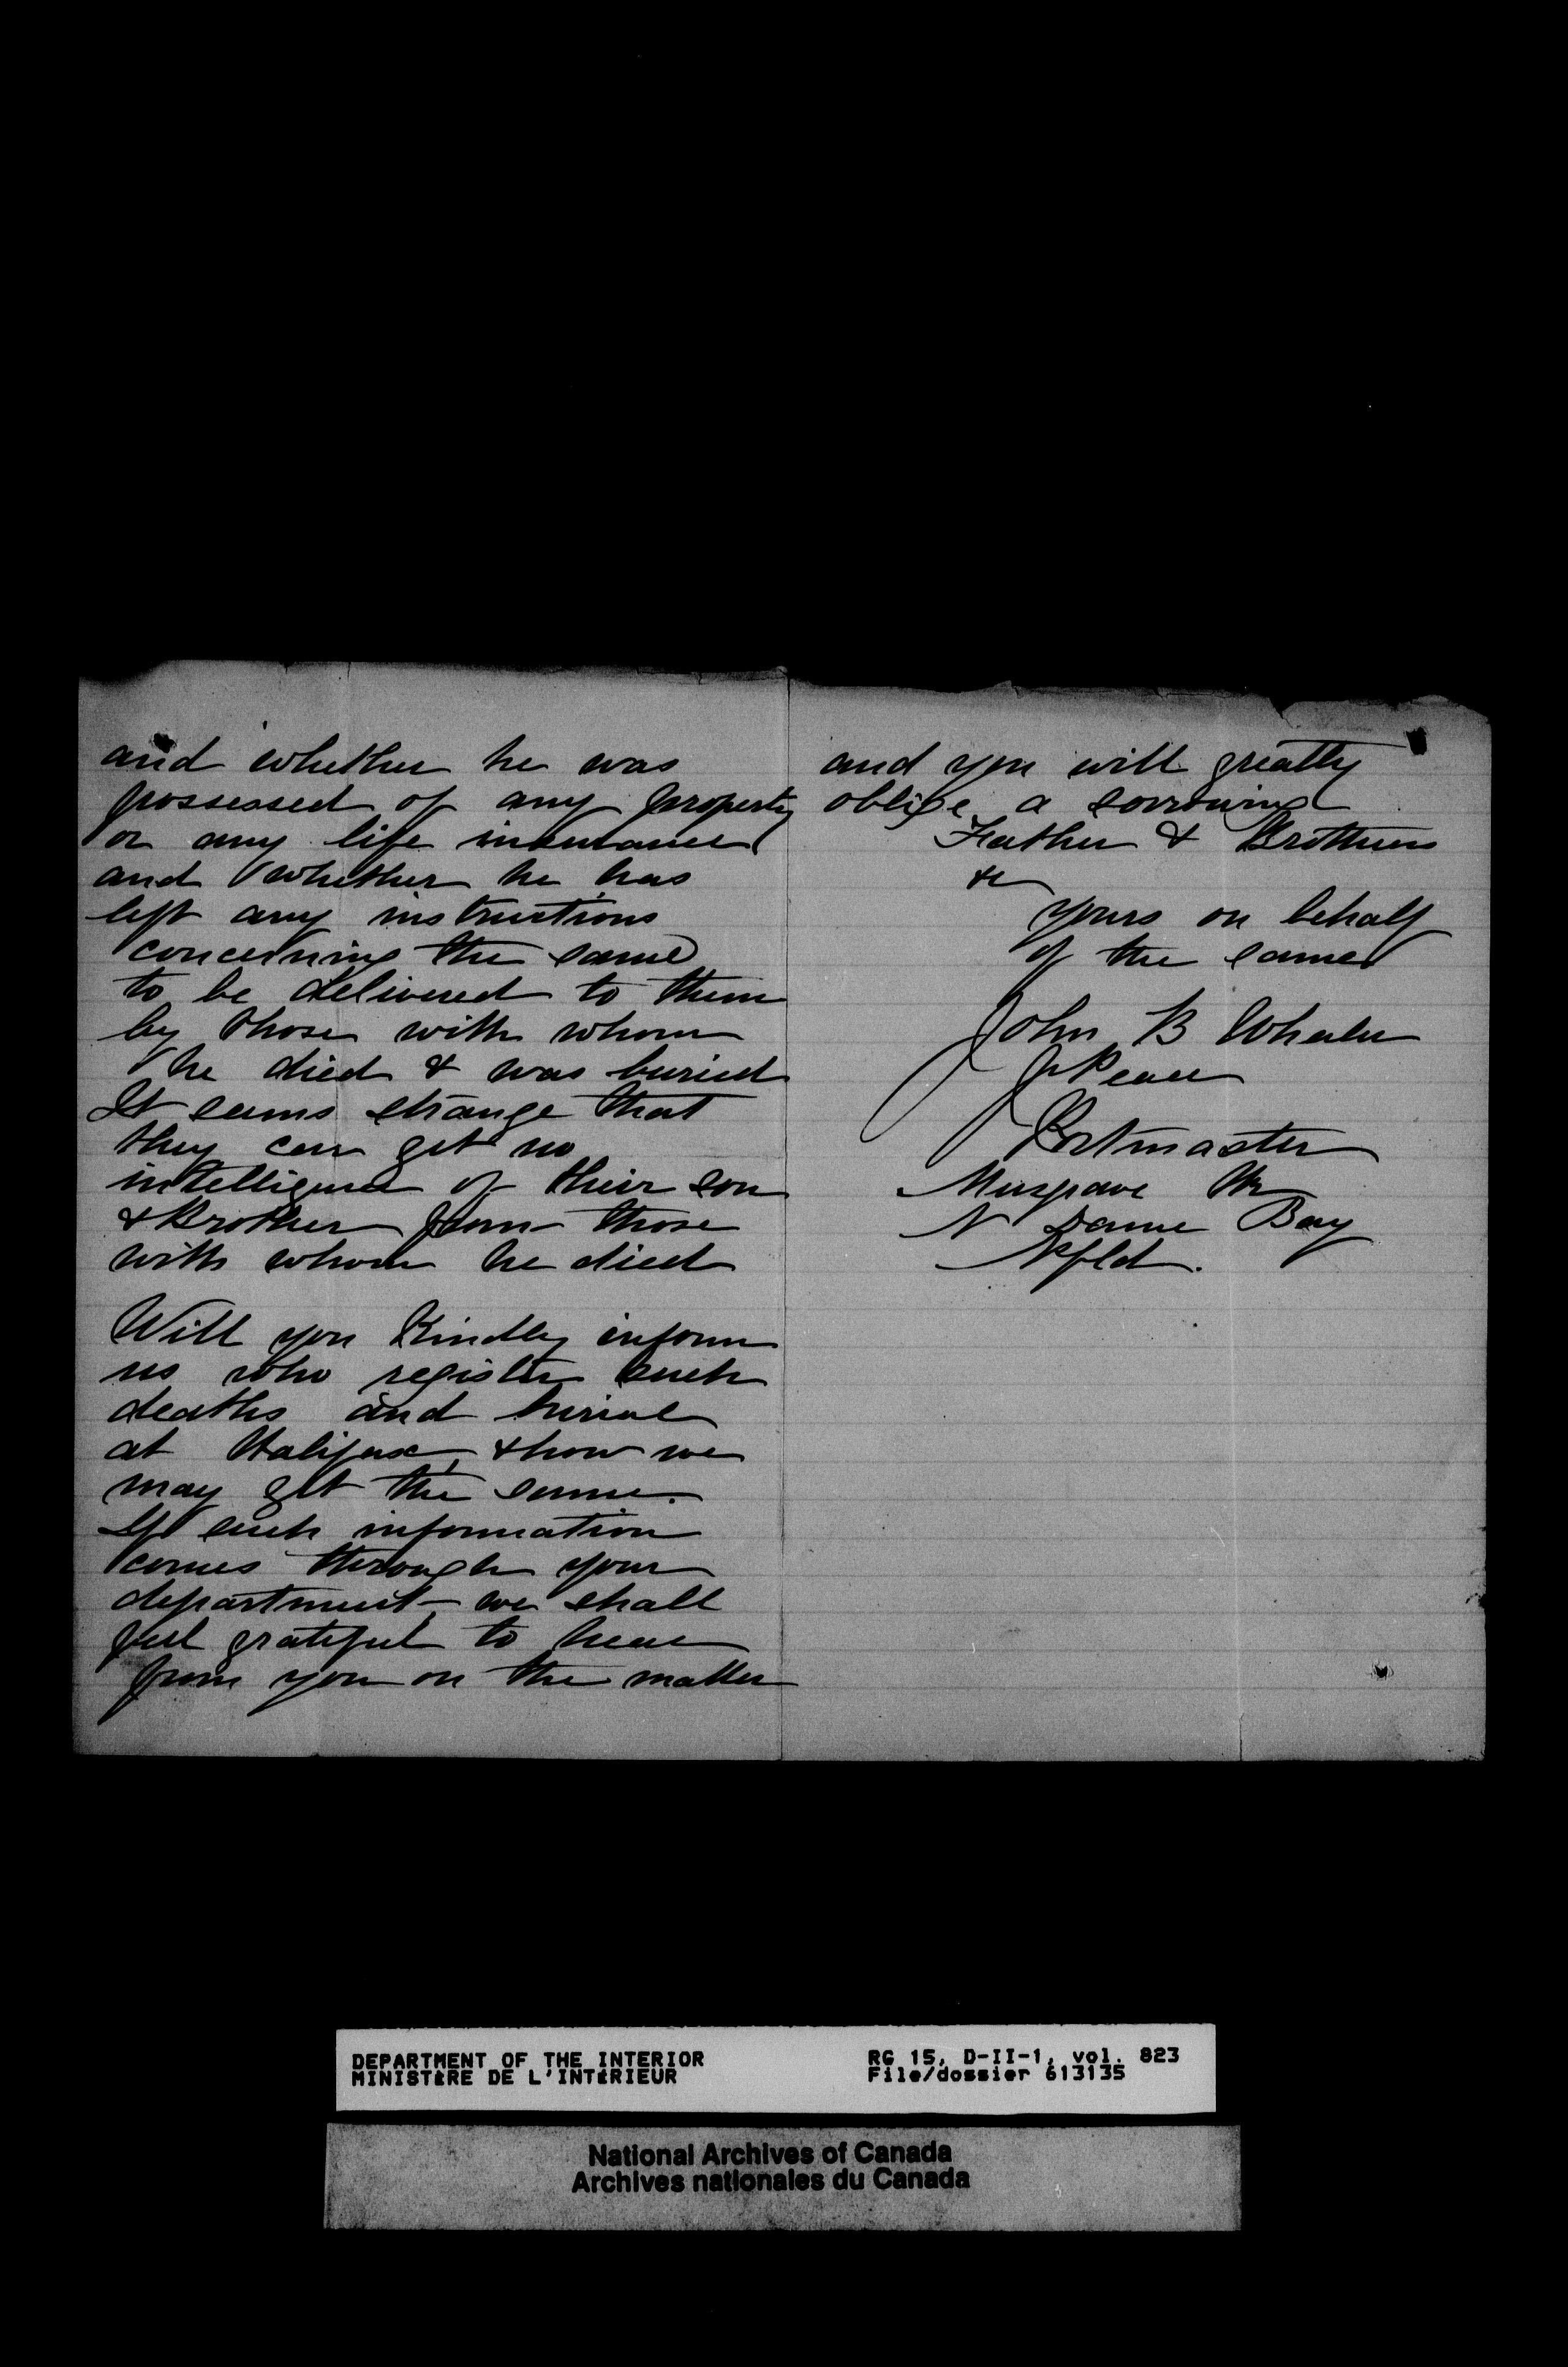 and whether he was
possessed of any property
or any life insurance
and whether he has
left any instructions
concerning the same
to be delivered to them
by those with whom
he died & was buried
It seems strange that
they can get no
intelligence of their son
& Brother from those
with whom he died
Will you Kindly inform
us who register such
deaths and burial
at Halifax, & how we
may get the same.
If such information
comes through your
department, we shall
feel grateful to hear
from you on the matter
and you will greatly
oblige a sorrowing
Father & Brothers
&c
yours on behalf
of the same
John B Wheeler
J Peace
Postmaster
Musgrave Hr
N Dame Bay
Nfld.
DEPARTMENT OF THE INTERIOR
MINISTÈRE DE L'INTÉRIEUR
RG 15, D-II-1, vol. 823
File/dossier 613135
National Archives of Canada
Archives nationales du Canada